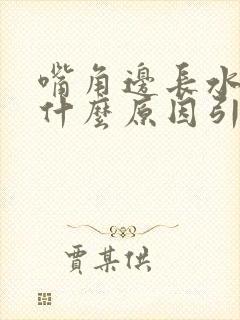 嘴角邊長水
什麼原因引
賈某供